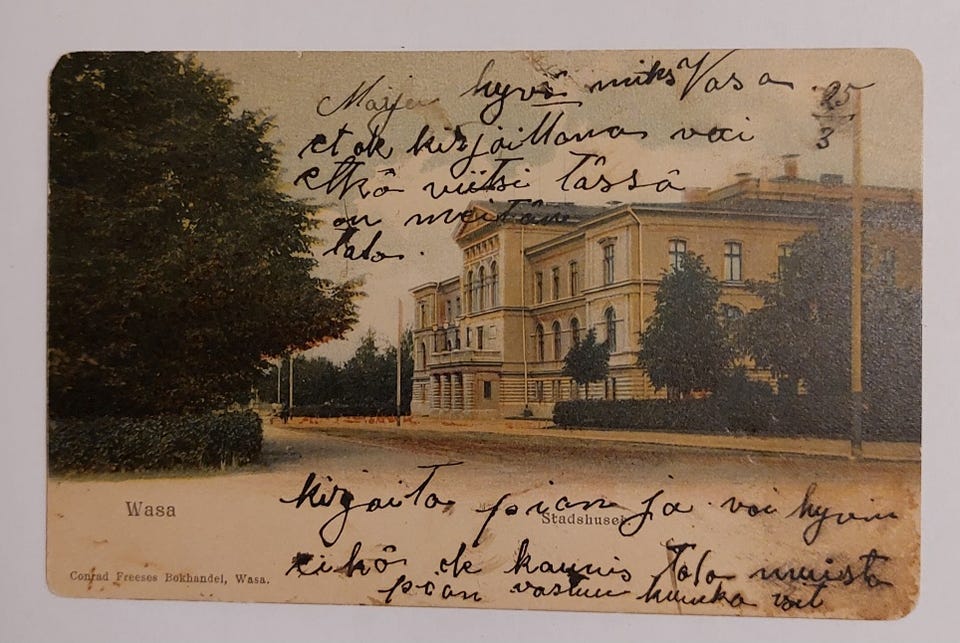 Maija hyvä miks Vasa
25
3
et ok kirjoittanas vai
etkö viitsi tässä
on meitän
talo.
kirjoita pian ja voi hyvin
Wasa
Stadshuset.
eikö ok kaunis talo muista
Conrad Freeses Bokhandel, Wasa.
pian vastuu kuinka